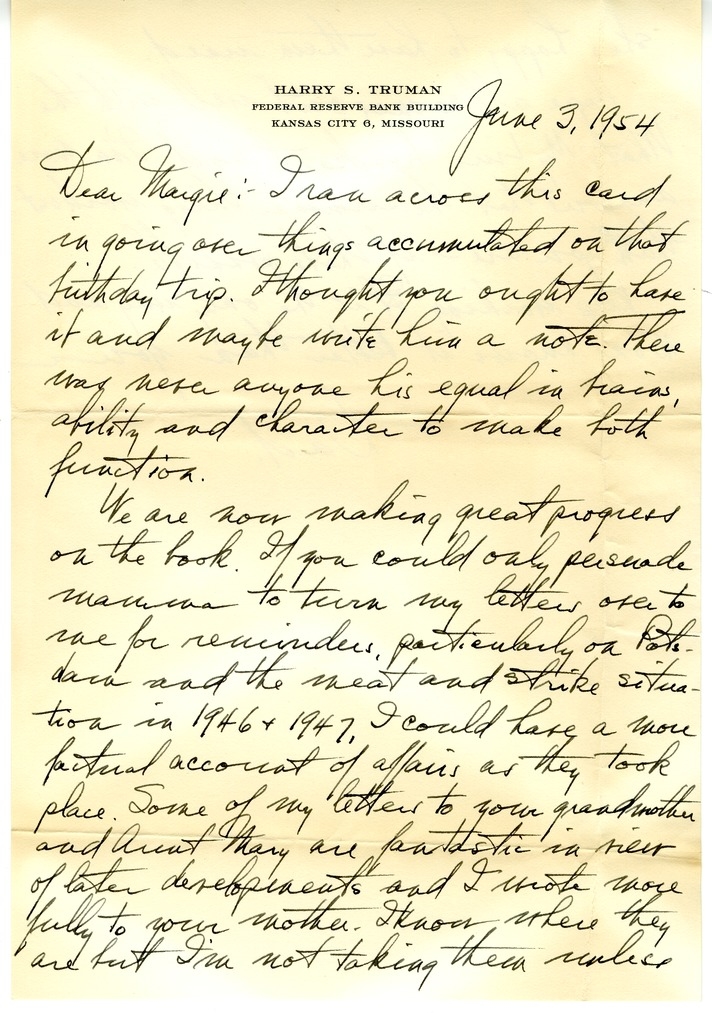 HARRY S. TRUMAN
FEDERAL RESERVE BANK BUILDING
KANSAS CITY 6, MISSOURI
June 3, 1954
Dear Margie:- I ran across this card
in going over things accumulated on that
birthday trip. I thought you ought to have
it and maybe write him a note. There
was never anyone his equal in brains,
ability and character to make both
function.
We are now making great progress
on the book. If you could only persuade
mamma to turn my letters over to
me for reminders, particularly on Pots-
dam and the meat and strike situa-
tion in 1946 + 1947, I could have a more
factual account of affairs as they took
place. Some of my letters to your grandmother
and Aunt Mary are fantastic in view
of later developments and I wrote more
fully to your mother. I know where they
are but I'm not taking them unless